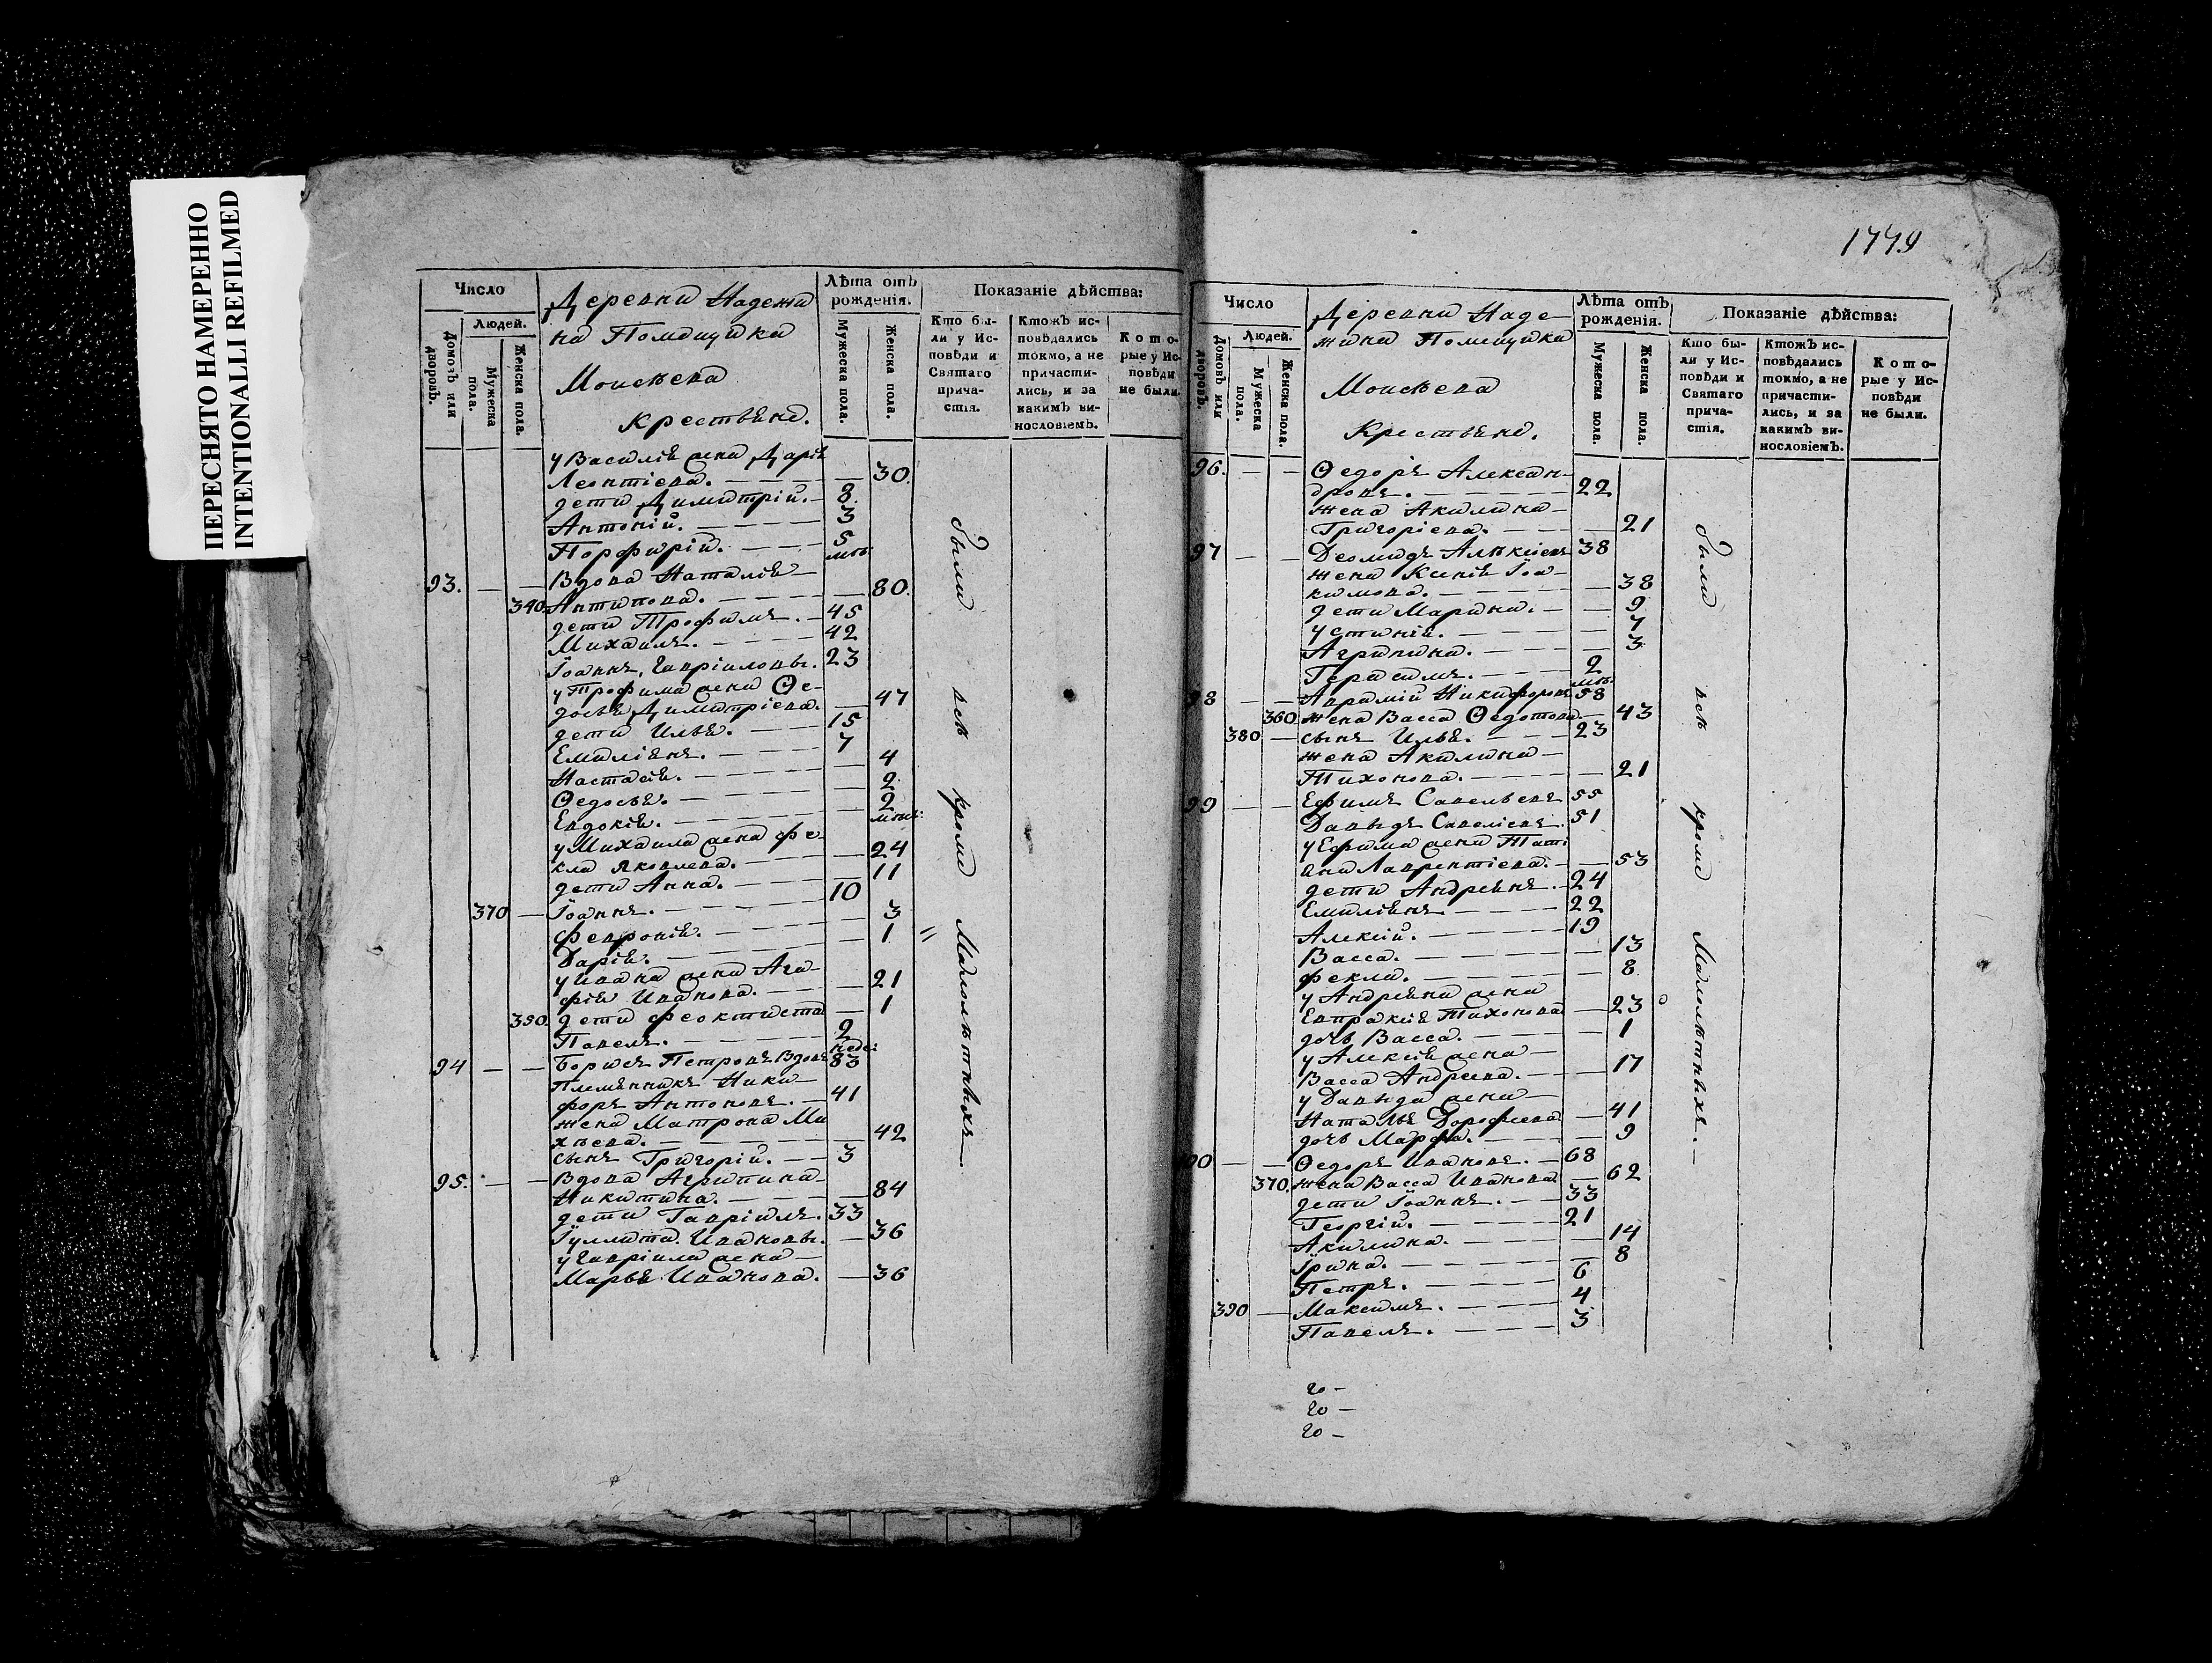 ПЕРЕСНЯТО НАМЕРЕННО
INTENTIONALLI REFILMED
Число
Людей.
Домовъ или дворовъ.
Мужеска пола.
Женска пола.
Деревни Надежи
на Помещика
Моисѣева
крестьяне.
Лѣта отъ рожденія.
Мужеска пола.
Женска пола.
Показаніе дѣйства:
Кто бы-
ли у Ис-
повѣди и
Святаго
прича-
стія.
Ктожъ ис-
повѣдались
токмо, а не
причасти-
лись, и за
какимъ ви-
нословіемъ.
Кото-
рые у Ис-
повѣди
не были.
у Василія жена Дарія
Леонтіева. — 30.
дети Димитрій. — 8.
Антоній. — 3
Порфирій. — 5 мѣ:
93. — — Вдова Наталія —
340. Антипова. — 80.
дети Трофимъ. — 45
Михаилъ. — 42
Іоаннъ, Гавріиловы. 23
у Трофима жена Ѳе-
досья Димитріева. — 47
дети Илья. — 15
Емиліянъ. — 7
Настасія. — 4
Ѳедосья. — 2
Евдокія. — 2 мѣся:
у Михаила жена Фе-
кла Яковлева. — 24
дети Анна. — 11
370 — Іоаннъ. — 10
Февронія. — 3
Дарія. — 1
у Ивана жена Ага-
фія Иванова. — 21
350. дети Феоктиста — 1
Павелъ. — 2 неде:
94 — — Борисъ Петровъ Вдовъ 83
Племянникъ Ники-
форъ Антоновъ. — 41
жена Матрона Ми
хѣева. — 42
сынъ Григорій. — 3
95. — — Вдова Агрипина
Никитина. — 84
дети Гавріилъ. 33
Іулита. Ивановы. — 36
у Гавріила жена —
Марья Иванова. — 36
были всѣ кроме Малолѣтныхъ —
1779
Число
Людей.
Домовъ или дворовъ.
Мужеска пола.
Женска пола.
Деревни Наде-
жина Помещика
Моисѣева
Крестьяне.
Лѣта отъ рожденія.
Мужеска пола.
Женска пола.
Показаніе дѣйства:
Кто бы-
ли у Ис-
повѣди и
Святаго
прича-
стія.
Ктожъ ис-
повѣдались
токмо, а не
причасти-
лись, и за
какимъ ви-
нословіемъ.
Кото-
рые у Ис-
повѣди
не были.
96. — — Ѳедоръ Алексан-
дровъ. — 22
жена Акилина —
Григоріева. — 21
97 — — Деомидъ Алѣксіевъ 38
жена Ксенія Іоа-
кимова. — 38
дети Марина. — 9
Устинія. — 7
Агрипина. — 3
Герасимъ. — 2 мѣ:
98 — — Аврамій Никифоровъ 58
360. жена Васса Ѳедотова — 43
380 — сынъ Илья. — 23
жена Акилина —
Тихонова. — 21
99 — — Ефимъ Савельевъ 55
Давыдъ Савеліевъ. 51
у Ефима жена Тать
яна Лаврентіева. — 53
дети Андреянъ. — 24
Емиліянъ — 22
Алексій. — 19
Васса. — 13
Фекла. — 8
у Андреяна жена
Евпраксія Тихонова — 23
дочь Васса. — 1
у Алексія жена —
Васса Андреева. — 17
у Давыда жена —
Наталья Дорофеева — 41
дочь Марфа. — 9
100 — — Ѳедоръ Ивановъ. — 68
370. жена Васса Иванова — 62
дети Іоаннъ. — 33
Георгій. — 21
Акилина. — 14
Ірина. — 8
Петръ. — 6
390 — Максимъ. — 4
Павелъ. — 3
были всѣ кроме Малолѣтныхъ. —
20 —
20 —
20 —